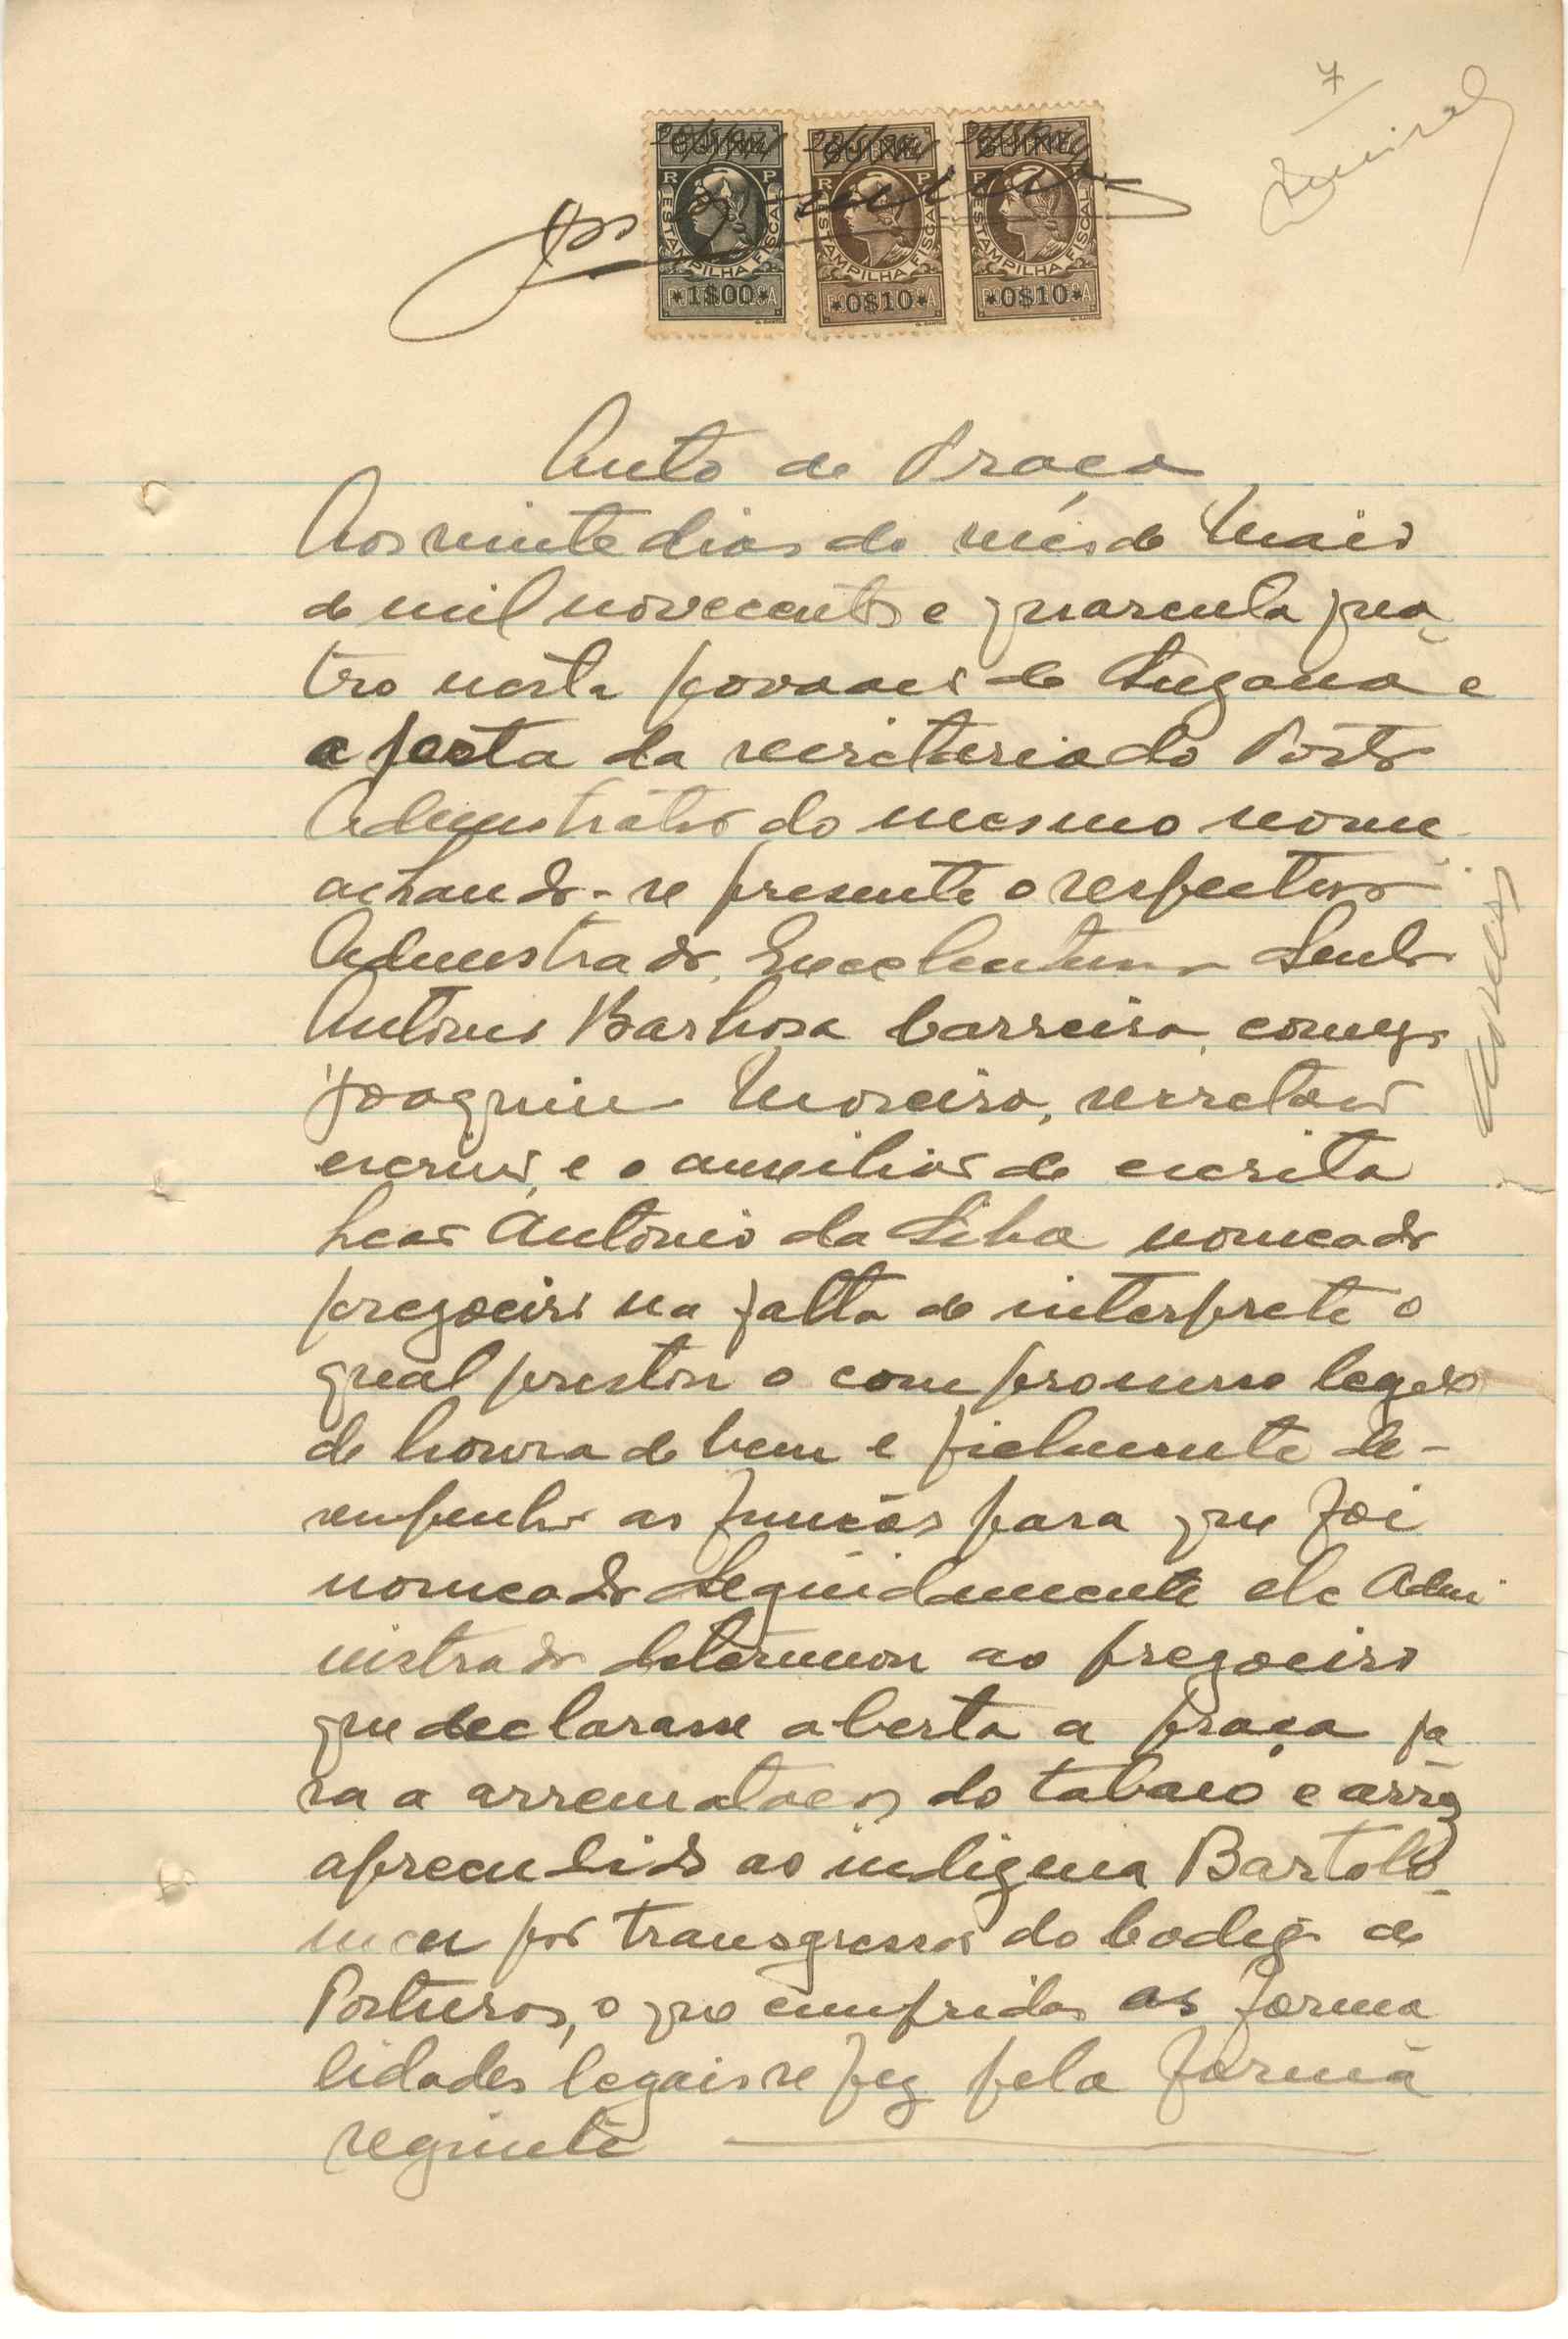 7
GUINÉ
GUINÉ
GUINÉ
R P
R P
R P
ESTAMPILHA FISCAL
ESTAMPILHA FISCAL
ESTAMPILHA FISCAL
*1$00*
*0$10*
*0$10*
Auto de Praça
Aos vinte dias do mês de Maio
de mil novecentos e quarenta qua
tro nesta povoação de e
a porta da secretaria do Posto
Admnistrativo do mesmo nome
achando-se presente o respectivo
Admnistrador, Excelentissimo Senhor
António Barbosa Carreira, comigo
Joaquim Moreira, secretario
escrivão, e o auxiliar de escrita
António da Silva nomeado
pregoeiro na falta de interprete o
qual prestou o compromisso legal
de honra de bem e fielmente de-
sempenhar as funções para que foi
nomeado Seguidamente ele Admi
nistrador determinou ao pregoeiro
que declarasse aberta a praça pa
ra a arrematação do tabaco e arroz
apreendido ao indigena Bartolo
meu por transgressão do Codigo de
Posturas, o que cumpridas as forma
lidades legais se fez pela forma
seguinte